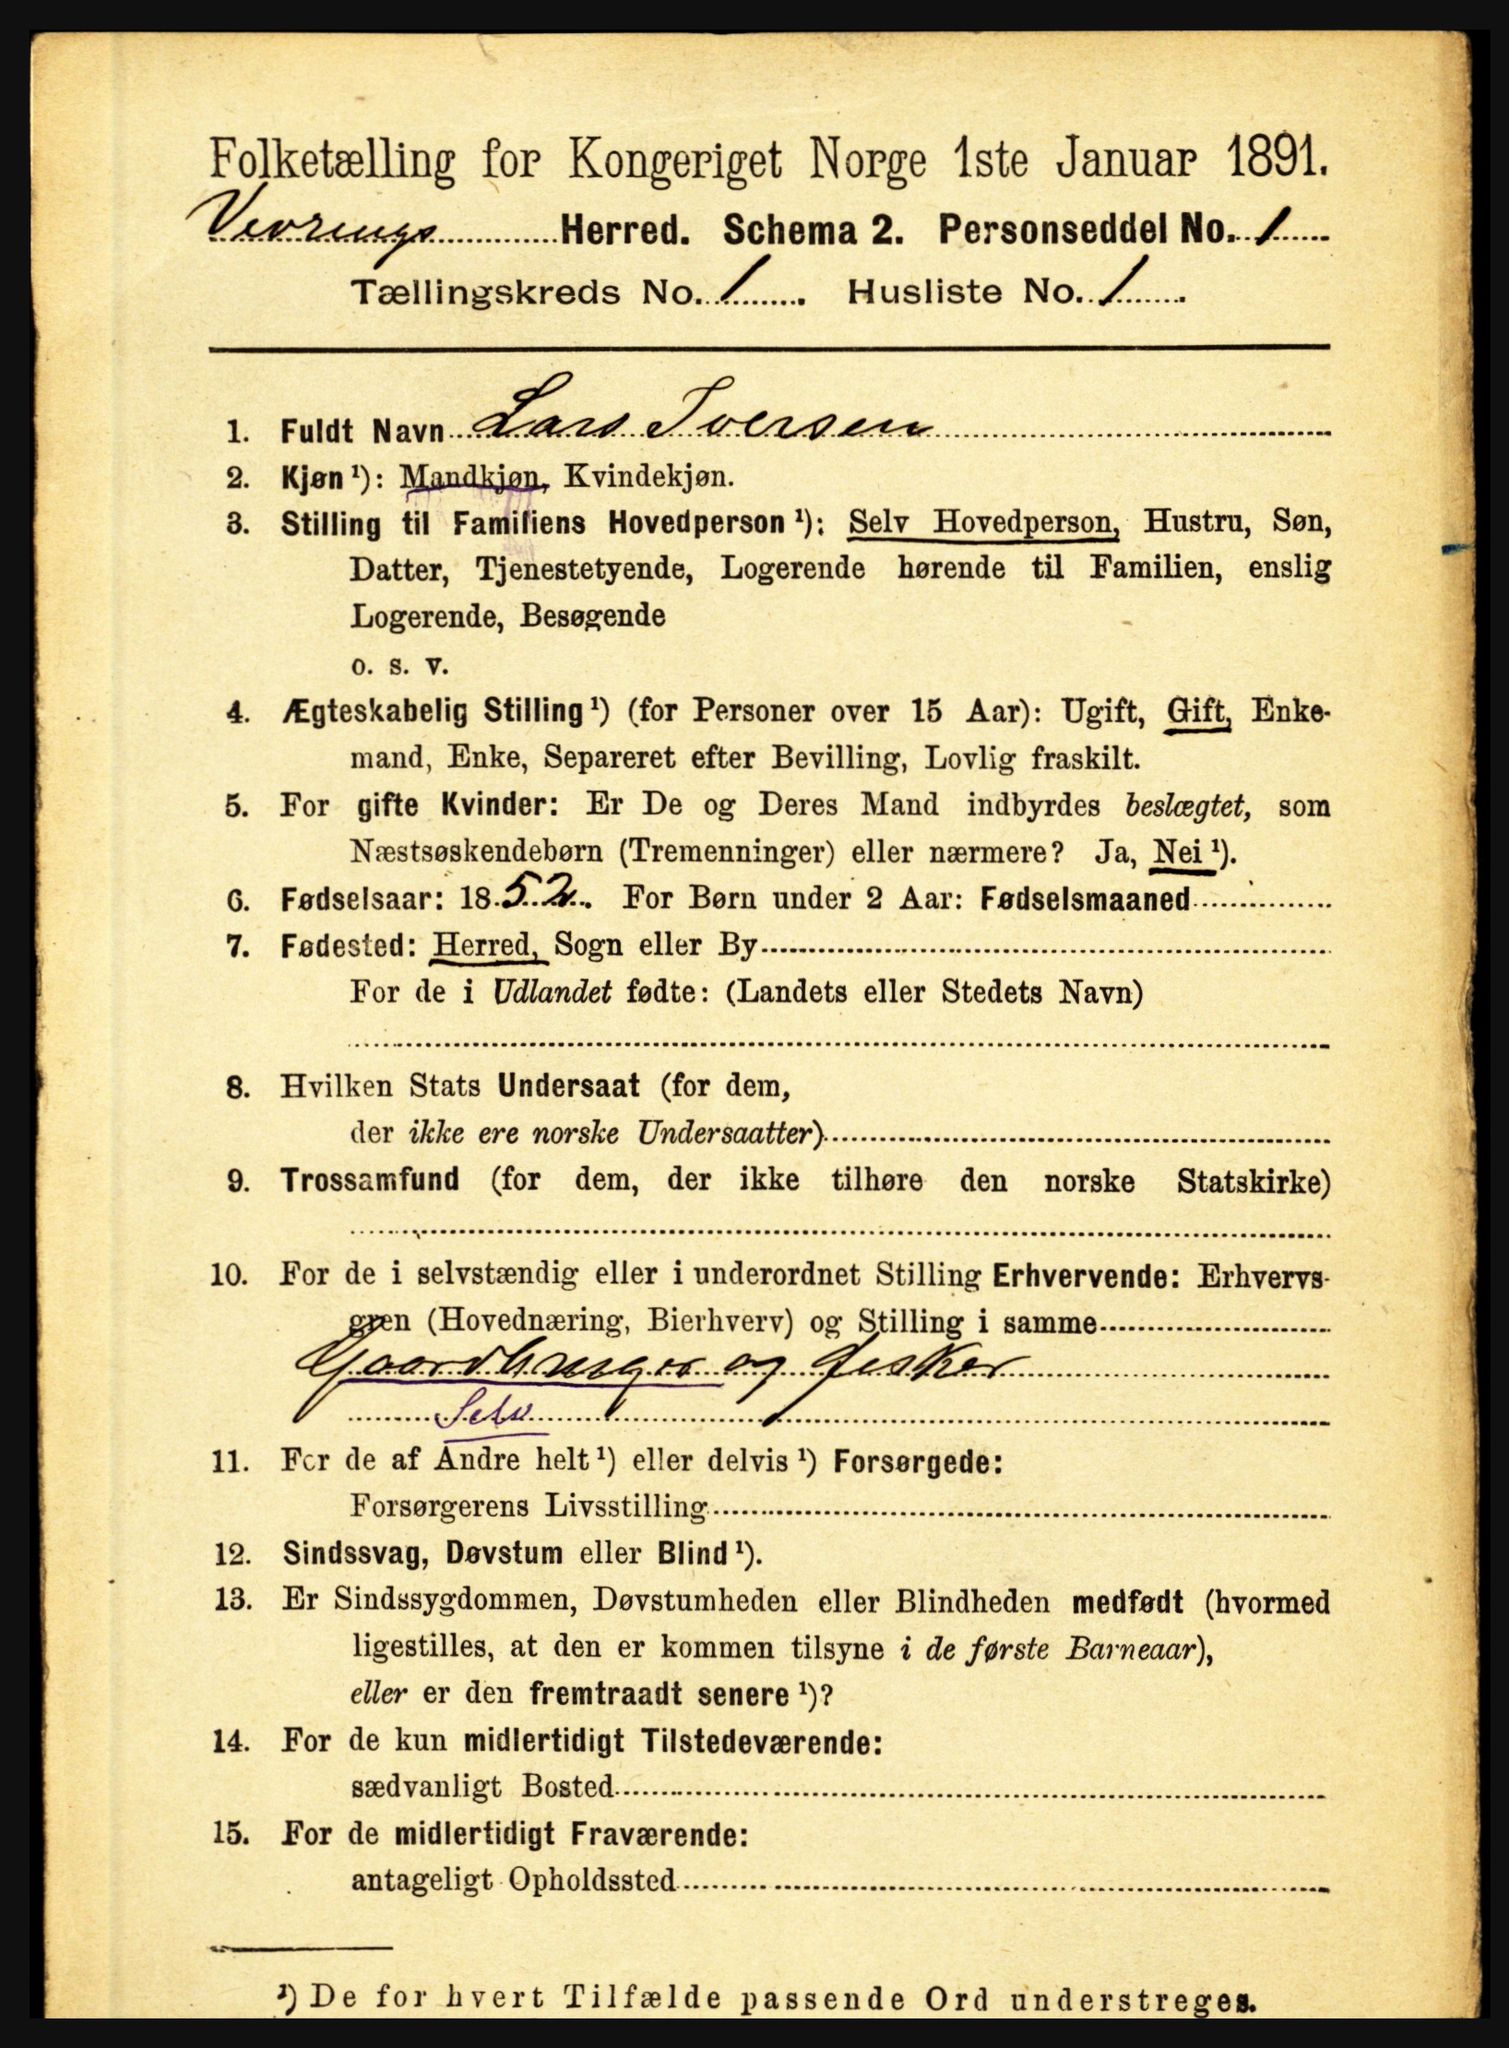 Folketælling for Kongeriget Norge 1ste Januar 1891.
Vevrings Herred. Schema 2. Personseddel No. 1
Tællingskreds No. 1. Husliste No. 1.
1. Fuldt Navn Lars Iversen
2. Kjøn ¹): Mandkjøn, Kvindekjøn.
3. Stilling til Familiens Hovedperson ¹): Selv Hovedperson, Hustru, Søn,
Datter, Tjenestetyende, Logerende hørende til Familien, enslig
Logerende, Besøgende
o. s. v.
4. Ægteskabelig Stilling ¹) (for Personer over 15 Aar): Ugift, Gift, Enke-
mand, Enke, Separeret efter Bevilling, Lovlig fraskilt.
5. For gifte Kvinder: Er De og Deres Mand indbyrdes beslægtet, som
Næstsøskendebørn (Tremenninger) eller nærmere? Ja, Nei ¹).
6. Fødselsaar: 1852. For Børn under 2 Aar: Fødselsmaaned
7. Fødested: Herred, Sogn eller By
For de i Udlandet fødte: (Landets eller Stedets Navn)
8. Hvilken Stats Undersaat (for dem,
der ikke ere norske Undersaatter)
9. Trossamfund (for dem, der ikke tilhøre den norske Statskirke)
10. For de i selvstændig eller i underordnet Stilling Erhvervende: Erhvervs-
gren (Hovednæring, Bierhverv) og Stilling i samme
Gaardbruger og fisker
Selv
11. For de af Andre helt ¹) eller delvis ¹) Forsørgede:
Forsørgerens Livsstilling
12. Sindssvag, Døvstum eller Blind ¹).
13. Er Sindssygdommen, Døvstumheden eller Blindheden medfødt (hvormed
ligestilles, at den er kommen tilsyne i de første Barneaar),
eller er den fremtraadt senere ¹)?
14. For de kun midlertidigt Tilstedeværende:
sædvanligt Bosted
15. For de midlertidigt Fraværende:
antageligt Opholdssted
¹) De for hvert Tilfælde passende Ord understreges.